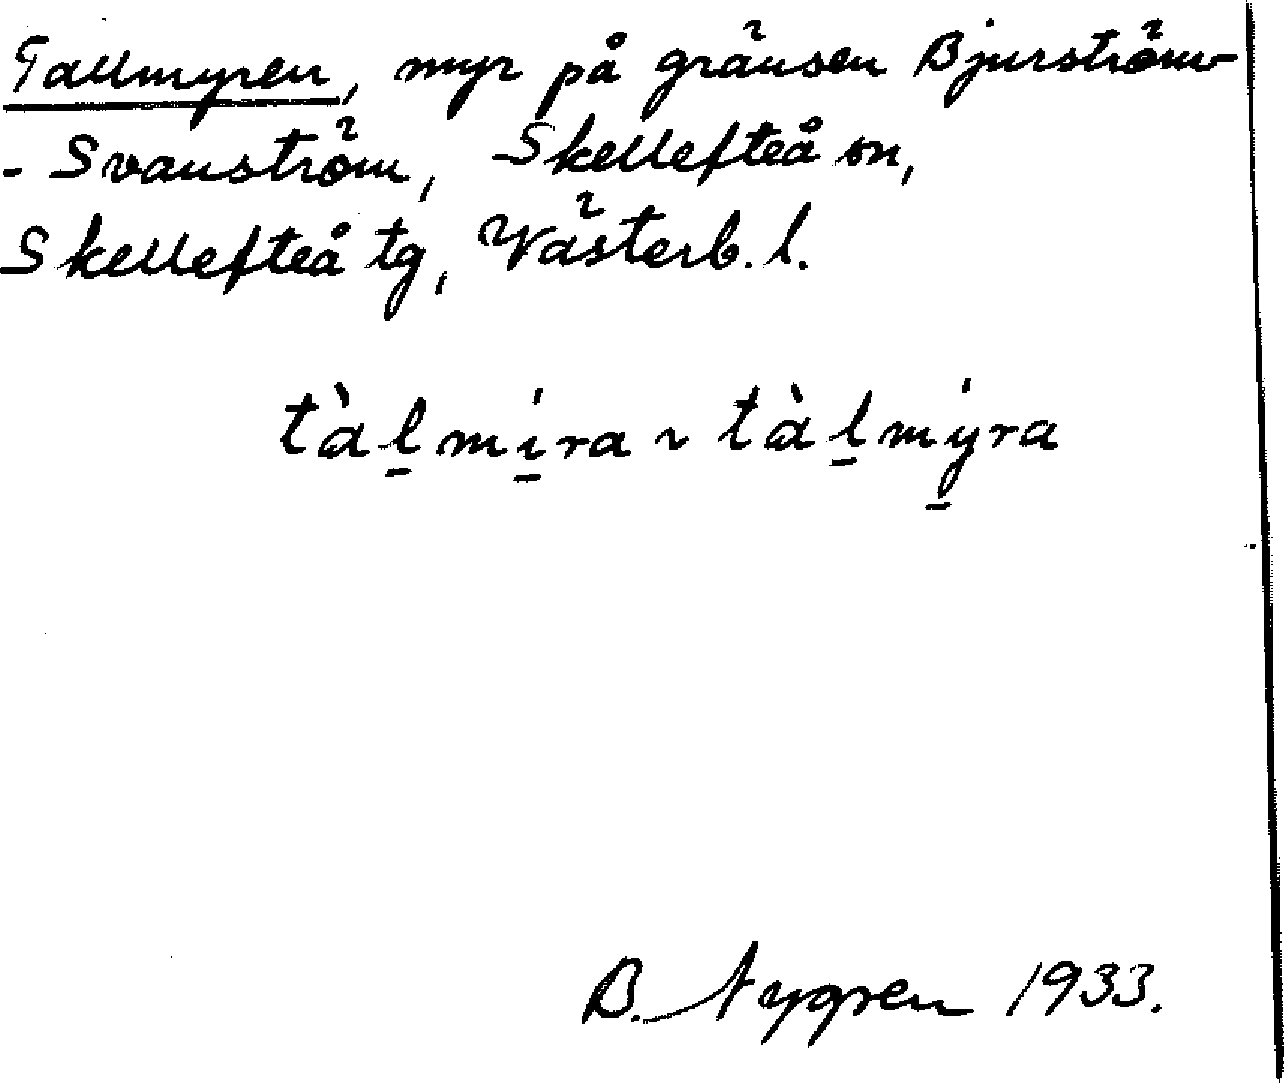 Tallmyren, myr på gränsen Bjurström-
- Svanström, Skellefteå sn,
Skellefteå tg, Västerb. l.
tàl̠mi̠ra ~ tàl̠my̠ra
B. Nygren 1933.